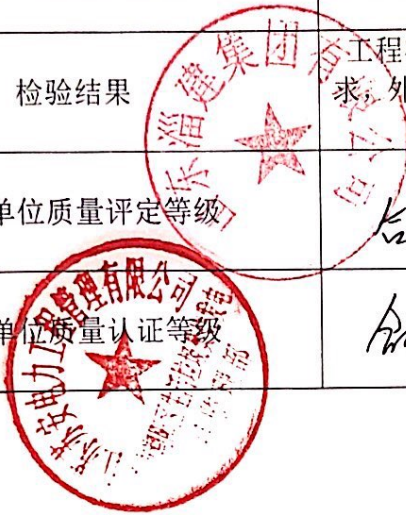 检验结果
工程
求，外
单位质量评定等级
合
单位质量认证等级
合
山东淄建集团有限公司
江苏苏安电力工程管理有限公司